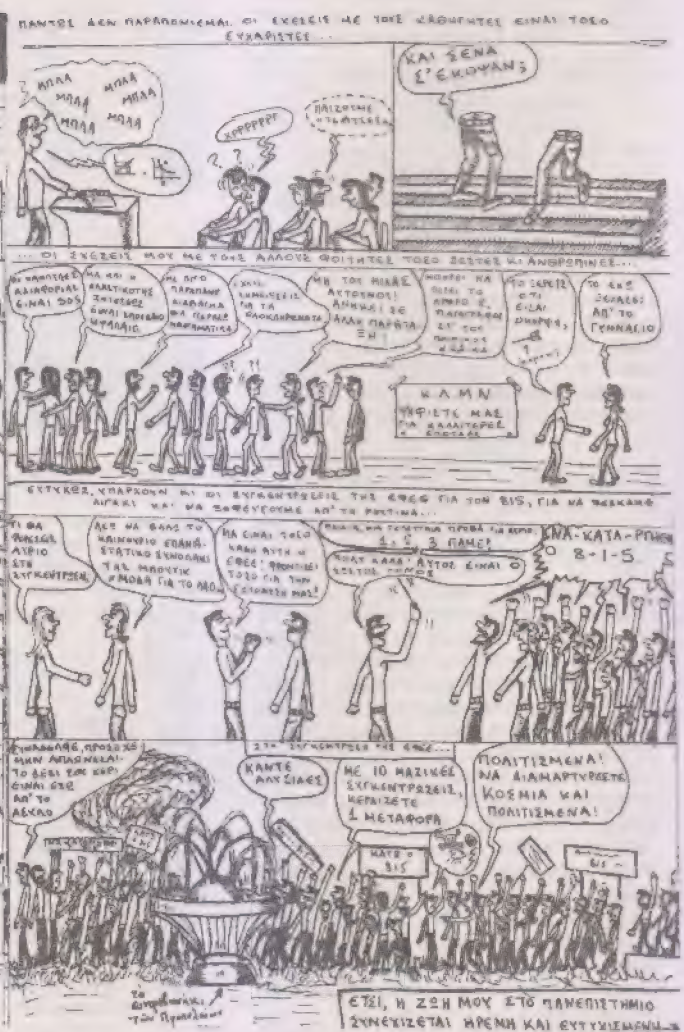 ΠΑΝΤΩΣ ΔΕΝ ΠΑΡΑΠΟΝΙΕΜΑΙ. ΟΙ ΣΧΕΣΕΙΣ ΜΕ ΤΟΥΣ ΚΑΘΗΓΗΤΕΣ ΕΙΝΑΙ ΤΟΣΟ
ΕΥΧΑΡΙΣΤΕΣ...
ΜΠΛΑ
ΜΠΛΑ ΜΠΛΑ
ΜΠΛΑ ΜΠΛΑ
ΜΠΛΑ
? ?
ΧΡΡΡΡΡΡΡ
ΠΑΙΖΟΥΜΕ
ΚΑΙ ΣΕΝΑ
Σ'ΕΚΟΨΑΝ;
... ΟΙ ΣΧΕΣΕΙΣ ΜΟΥ ΜΕ ΤΟΥΣ ΑΛΛΟΥΣ ΦΟΙΤΗΤΕΣ ΤΟΣΟ ΖΕΣΤΕΣ ΚΙ ΑΝΘΡΩΠΙΝΕΣ...
ΑΔΙΑΦΟΡΙΑΣ
ΕΙΝΑΙ SOS
ΜΑ ΚΑΙ Η
ΕΛΑΣΤΙΚΟΤΗΣ
ΖΗΤΗΣΕΩΣ
ΕΙΝΑΙ ΣΠΟΥΔΑΙΟ
ΚΕΦΑΛΑΙΟ
ΜΕ ΛΙΓΟ
ΠΑΡΑΠΑΝΩ
ΔΙΑΒΑΣΜΑ
ΘΑ
ΜΑΘΗΜΑΤΙΚΑ
ΕΧΕΙΣ
ΣΗΜΕΙΩΣΕΙΣ
ΓΙΑ ΤΑ
ΟΛΟΚΛΗΡΩΜΑΤΑ
ΜΗ ΤΟΥ ΜΙΛΑΣ
ΑΥΤΟΥΝΟΥ!
ΑΝΗΚΕΙ ΣΕ
ΑΛΛΗ ΠΑΡΑΤΑ
ΞΗ!
ΤΟ ΞΕΡΕΙΣ
ΟΤΙ
ΕΙΣΑΙ
ΟΜΟΡΦΗ;
ΤΟ ΕΧΩ
ΞΕΧΑΣΕΙ
ΑΠ' ΤΟ
ΓΥΜΝΑΣΙΟ
?? !!
Κ Λ Μ Ν
ΨΗΦΙΣΤΕ ΜΑΣ
ΓΙΑ ΚΑΛΛΙΤΕΡΕΣ
ΕΥΤΥΧΩΣ, ΥΠΑΡΧΟΥΝ ΚΙ ΟΙ ΣΥΓΚΕΝΤΡΩΣΕΙΣ ΤΗΣ ΕΦΕΕ ΓΙΑ ΤΟΝ 815, ΓΙΑ ΝΑ ΞΕΣΚΑΜΕ
ΛΙΓΑΚΙ ΚΑΙ ΝΑ ΞΕΦΕΥΓΟΥΜΕ ΑΠ' ΤΗ ΡΟΥΤΙΝΑ...
ΤΙ ΘΑ
ΦΟΡΕΣΕΙΣ
ΑΥΡΙΟ
ΣΤΗ
ΣΥΓΚΕΝΤΡΩΣΗ;
ΛΕΩ ΝΑ ΒΑΛΩ ΤΟ
ΚΑΙΝΟΥΡΙΟ ΕΠΑΝΑ-
ΣΤΑΤΙΚΟ ΣΥΝΟΛΑΚΙ
ΤΗΣ ΜΠΟΥΤΙΚ
"ΜΟΔΑ ΓΙΑ ΤΟ ΛΑΟ"
ΜΑ ΕΙΝΑΙ ΤΟΣΟ
ΚΑΛΗ ΑΥΤΗ Η
ΕΦΕΕ! ΦΡΟΝΤΙΖΕΙ
ΤΟΣΟ ΓΙΑ ΤΗΝ
ΜΑΣ!
1, 2, 3 ΠΑΜΕ!
ΠΟΛΥ ΚΑΛΑ! ΑΥΤΟΣ ΕΙΝΑΙ Ο
ΣΩΣΤΟΣ ΤΟΝΟΣ
ΝΑ-ΚΑΤΑ-ΡΓΗΘΗ
Ο 8-1-5
ΣΥΝΑΔΕΛΦΕ, ΠΡΟΣΟΧΗ
ΜΗΝ ΑΠΛΩΝΕΣΑΙ.
ΤΟ ΔΕΞΙ ΣΟΥ ΧΕΡΙ
ΕΙΝΑΙ ΕΞΩ
ΑΠ' ΤΟ
ΣΤΗ ΣΥΓΚΕΝΤΡΩΣΗ ΤΗΣ ΕΦΕΕ...
ΚΑΝΤΕ
ΑΛΥΣΙΔΕΣ
ΜΕ 10 ΜΑΖΙΚΕΣ
ΣΥΓΚΕΝΤΡΩΣΕΙΣ,
ΚΕΡΔΙΖΕΤΕ
1 ΜΕΤΑΦΟΡΑ
ΠΟΛΙΤΙΣΜΕΝΑ!
ΝΑ ΔΙΑΜΑΡΤΥΡΕΣΤΕ
ΚΟΣΜΙΑ ΚΑΙ
ΠΟΛΙΤΙΣΜΕΝΑ!
ΚΑΤΩ Ο
815
το
των Προπυλαίων
ΕΤΣΙ, Η ΖΩΗ ΜΟΥ ΣΤΟ ΠΑΝΕΠΙΣΤΗΜΙΟ
ΣΥΝΕΧΙΖΕΤΑΙ ΗΡΕΜΗ ΚΑΙ ΕΥΤΥΧΙΣΜΕΝΗ...